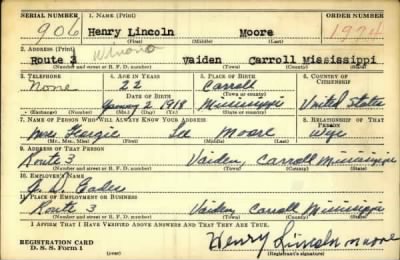 SERIAL NUMBER 1. NAME (Print) ORDER NUMBER
906 Henry Lincoln Moore
(First) (Middle) (Last)
2. ADDRESS (Print) Winona
Route 3 Vaiden Carroll Mississippi
(Number and street or R. F. D. number) (Town) (County) (State)
3. TELEPHONE 4. AGE IN YEARS 5. PLACE OF BIRTH 6. COUNTRY OF CITIZENSHIP
None 22 Carroll
DATE OF BIRTH (Town or county)
January 2 1918 Mississippi United States
(Exchange) (Number) (Mo.) (Day) (Yr.) (State or country)
7. NAME OF PERSON WHO WILL ALWAYS KNOW YOUR ADDRESS 8. RELATIONSHIP OF THAT PERSON
Mrs Lee Moore Wife
(Mr., Mrs., Miss) (First) (Middle) (Last)
9. ADDRESS OF THAT PERSON
Route 3 Vaiden, Carroll Mississippi
(Number and street or R. F. D. number) (Town) (County) (State)
10. EMPLOYER'S NAME
11. PLACE OF EMPLOYMENT OR BUSINESS
Route 3 Vaiden, Carroll Mississippi
(Number and street or R. F. D. number) (Town) (County) (State)
I AFFIRM THAT I HAVE VERIFIED ABOVE ANSWERS AND THAT THEY ARE TRUE.
REGISTRATION CARD
D. S. S. FORM 1 (over) Henry Lincoln Moore
(Registrant's signature)